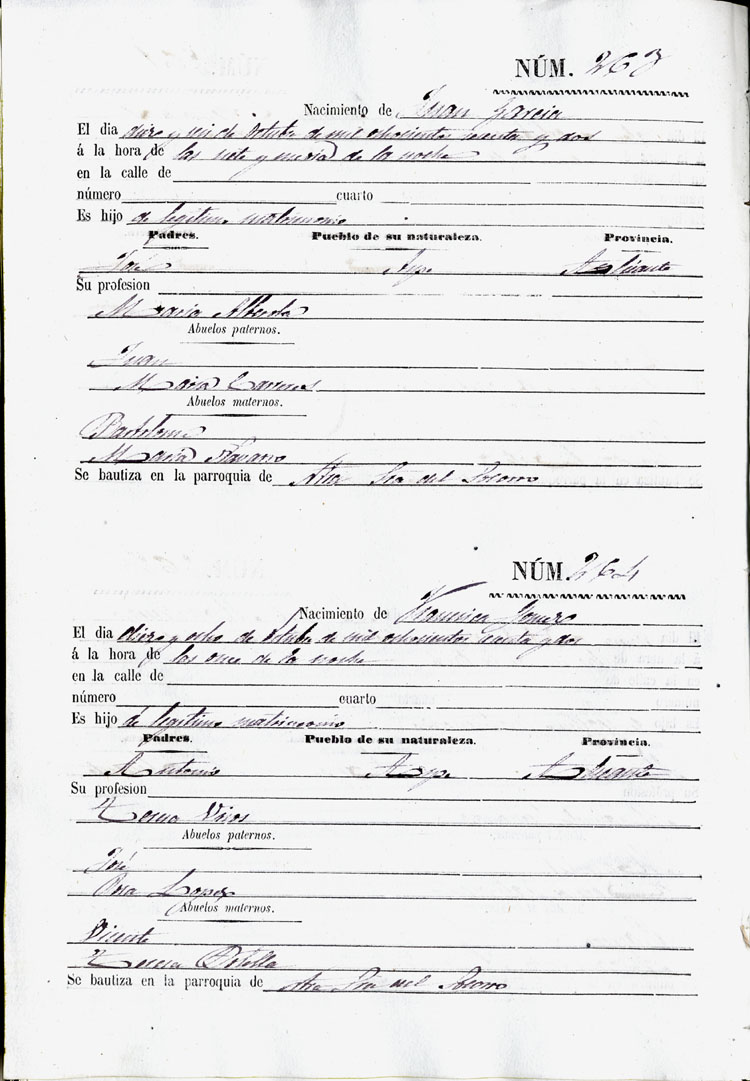 NÚM. 263
Nacimiento de Juan Garcia
El dia diez y seis de Octubre de mil ochocientos sesenta y dos
á la hora de las siete y media de la noche
en la calle de
número cuarto
Es hijo de legitimo matrimonio
Padres. Pueblo de su naturaleza. Provincia.
José Aspe Alicante
Su profesion
Maria Alberola
Abuelos paternos.
Juan
Maria Carreres
Abuelos maternos.
Bartolomé
Maria Navarro
Se bautiza en la parroquia de Ntra Sra del Socorro
NÚM. 264
Nacimiento de Francisca
El dia diez y ocho de Octubre de mil ochocientos sesenta y dos
á la hora de las once de la noche
en la calle de
número cuarto
Es hijo de legitimo matrimonio
Padres. Pueblo de su naturaleza. Provincia.
Antonio Aspe Alicante
Su profesion
Teresa
Abuelos paternos.
José
Lopez
Abuelos maternos.
Vicente
Teresa Botella
Se bautiza en la parroquia de Ntra Sra del Socorro